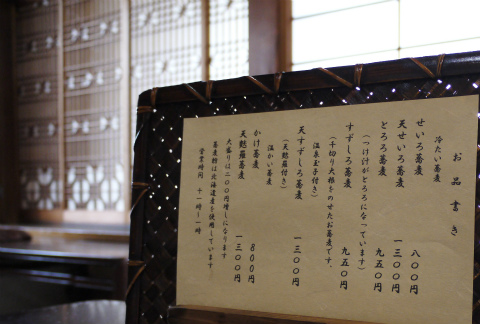 お品書き
冷たい蕎麦
せいろ蕎麦 八〇〇円
天せいろ蕎麦 一三〇〇円
とろろ蕎麦 九五〇円
(つけ汁がとろろになっています)
すずしろ蕎麦 九五〇円
(千切り大根をのせたお蕎麦です。
温泉玉子付き)
天すずしろ蕎麦 一三〇〇円
(天麩羅付き)
温かい蕎麦
かけ蕎麦 八〇〇円
天麩羅蕎麦 一三〇〇円
大盛りは二〇〇円増しになります
蕎麦粉は北海道産を使用しています
営業時間 十一時〜一時